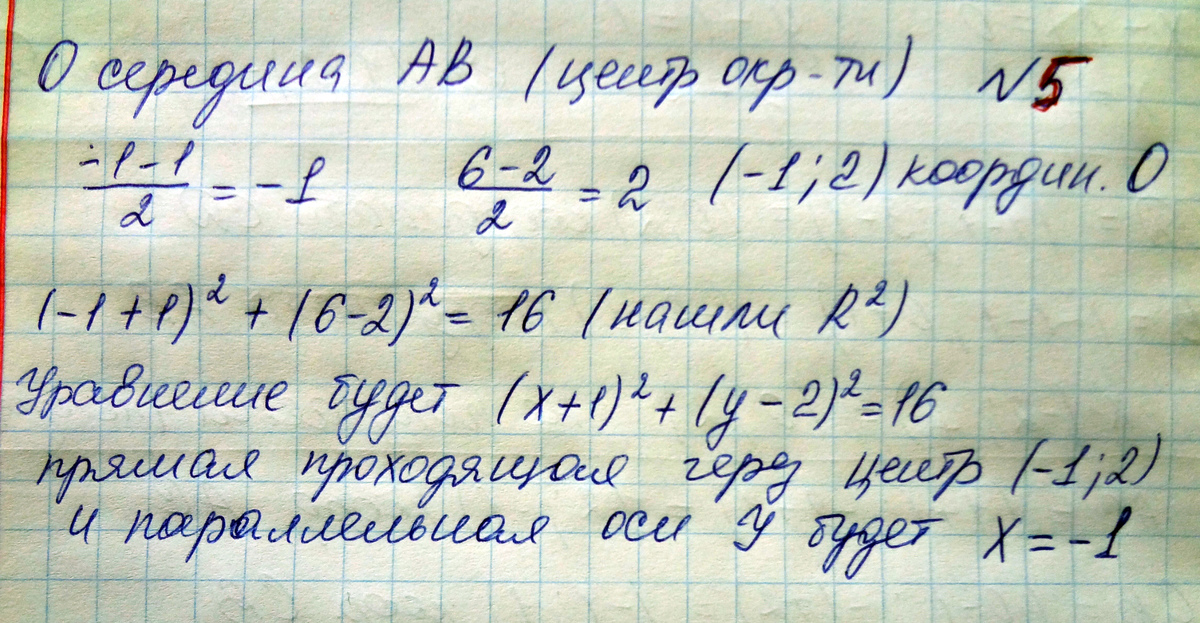 О середина АВ (центр окр-ти) №5
(-1-1)/2 = -1 (6-2)/2 = 2 (-1; 2) координ. О
(-1+1)² + (6-2)² = 16 (нашли R²)
Уравнение будет (x+1)² + (y-2)² = 16
прямая проходящая через центр (-1; 2)
и параллельная оси У будет х = -1